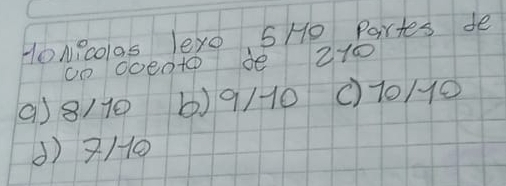 10 Nicolas leyo 5/10 Partes de
un cuento de 210
a) 8/10 b) 9/10 c) 10/10
d) 7/10